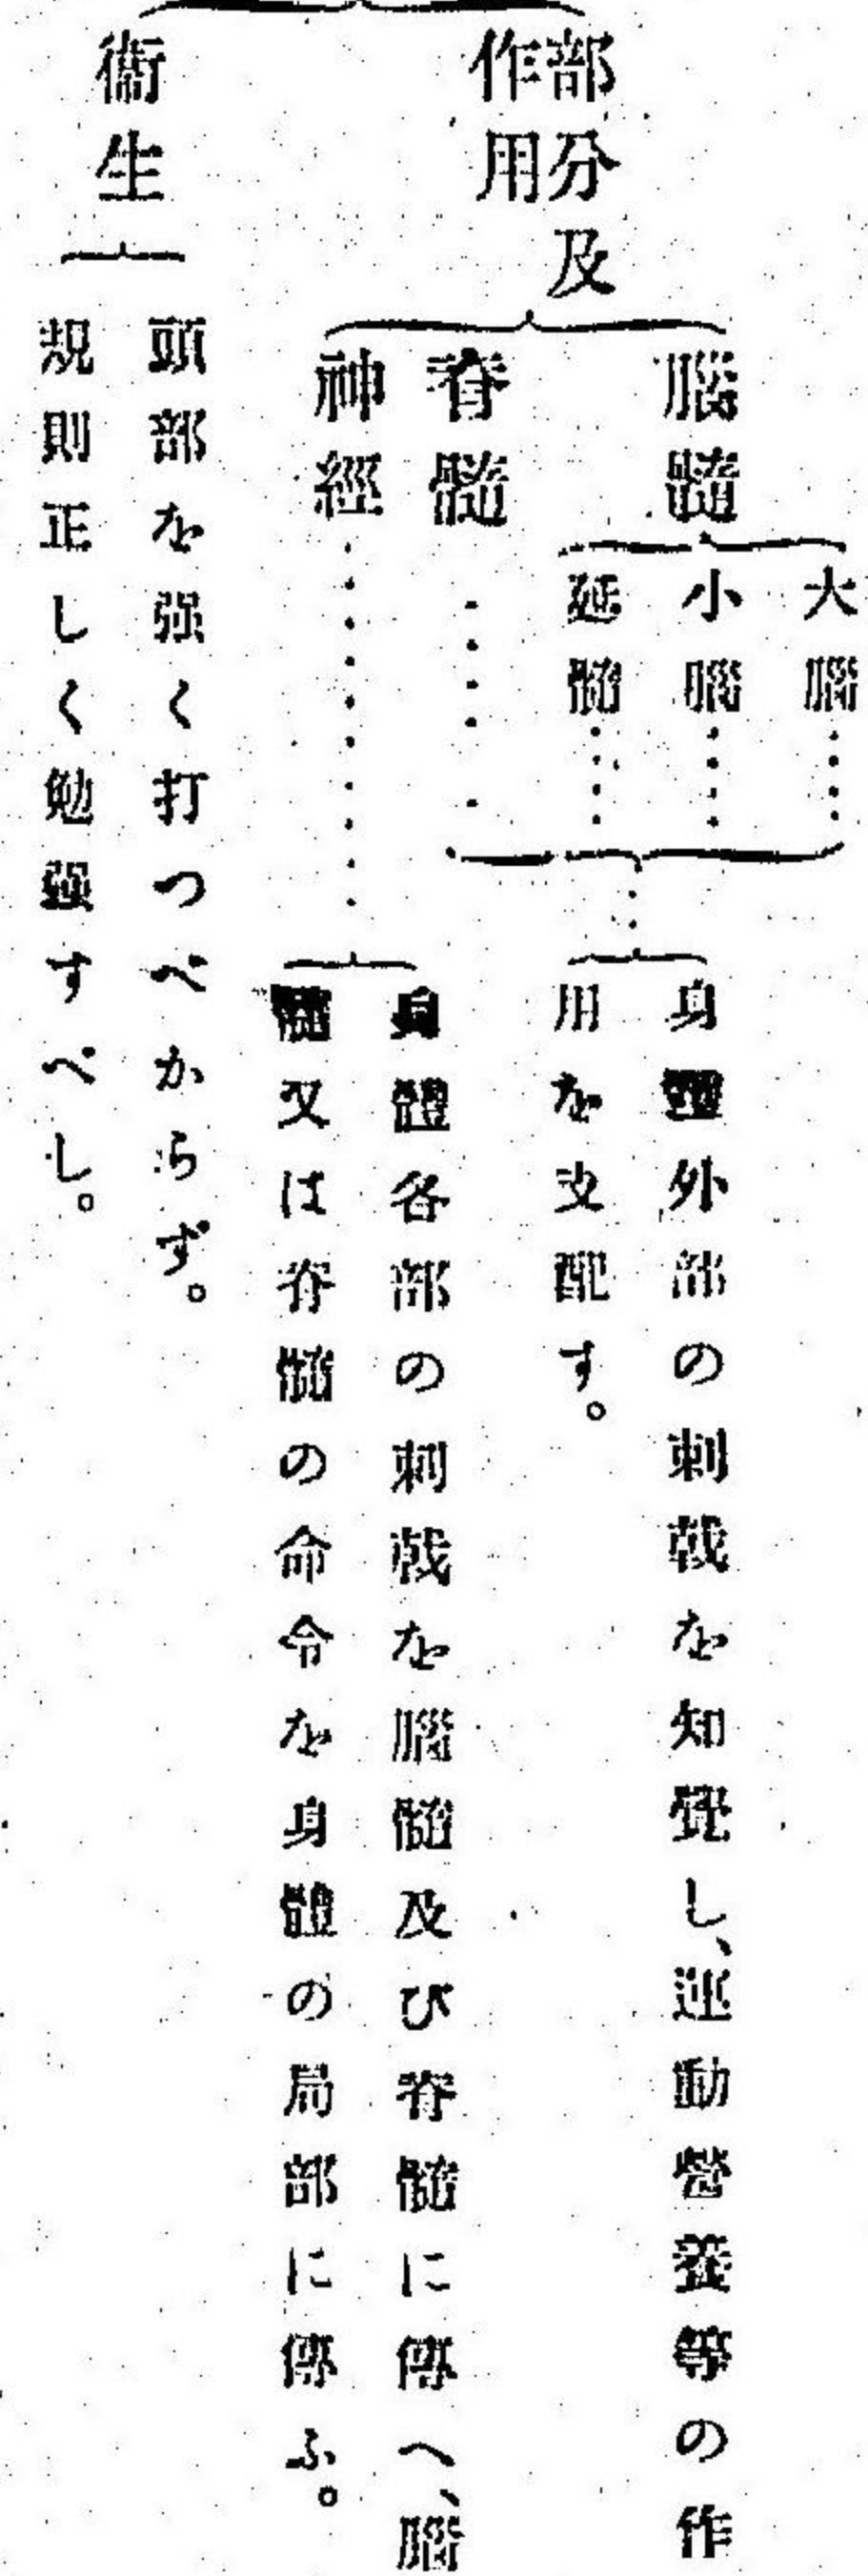 部分及
作用
腦髓
大腦
小腦
延髓
脊髓
身體外部の刺戟を知覺し、運動營養等の作
用を支配す。
神經
身體各部の刺戟を腦髓及び脊髓に傳へ、腦
髓又は脊髓の命令を身體の局部に傳ふ。
衞生
頭部を强く打つべからず。
規則正しく勉强すべし。